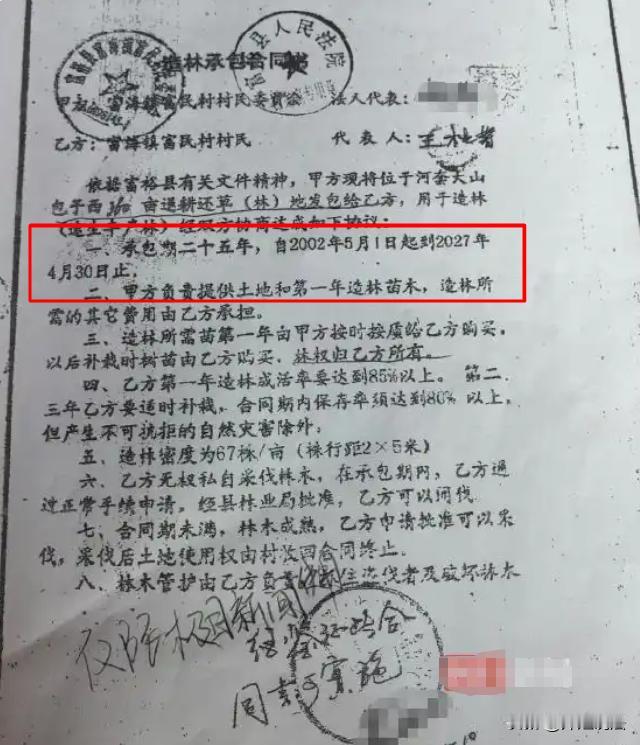 富裕县人民法院
造林承包合同书
甲方：富海镇富民村村民委员会 法人代表：
乙方：富海镇富民村村民 代表人：王
依据富裕县有关文件精神，甲方现将位于河套大山
包子西360亩退耕还草（林）地发包给乙方，用于造林
（速生丰产林）经双方协商达成如下协议：
一、承包期二十五年，自2002年5月1日起到2027年
4月30日止。
二、甲方负责提供土地和第一年造林苗木，造林所
需的其它费用由乙方承担。
三、造林所需苗第一年由甲方按时按质给乙方购买。
以后补栽时树苗由乙方购买、林权归乙方所有。
四、乙方第一年造林成活率要达到85%以上。第二、
三年乙方要适时补栽，合同期内保存率须达到80%以上，
但产生不可抗拒的自然灾害除外。
五、造林密度为67株/亩（株行距2×5米）
六、乙方无权私自采伐林木，在承包期内，乙方通
过正常手续申请，经县林业局批准，乙方可以间伐
七、合同期未满，林木成熟，乙方申请批准可以采
伐，采伐后土地使用权由村收回合同终止.
八、林木管护由乙方负责 住盗伐者及破坏林木
仅限极目新闻
同意 实施